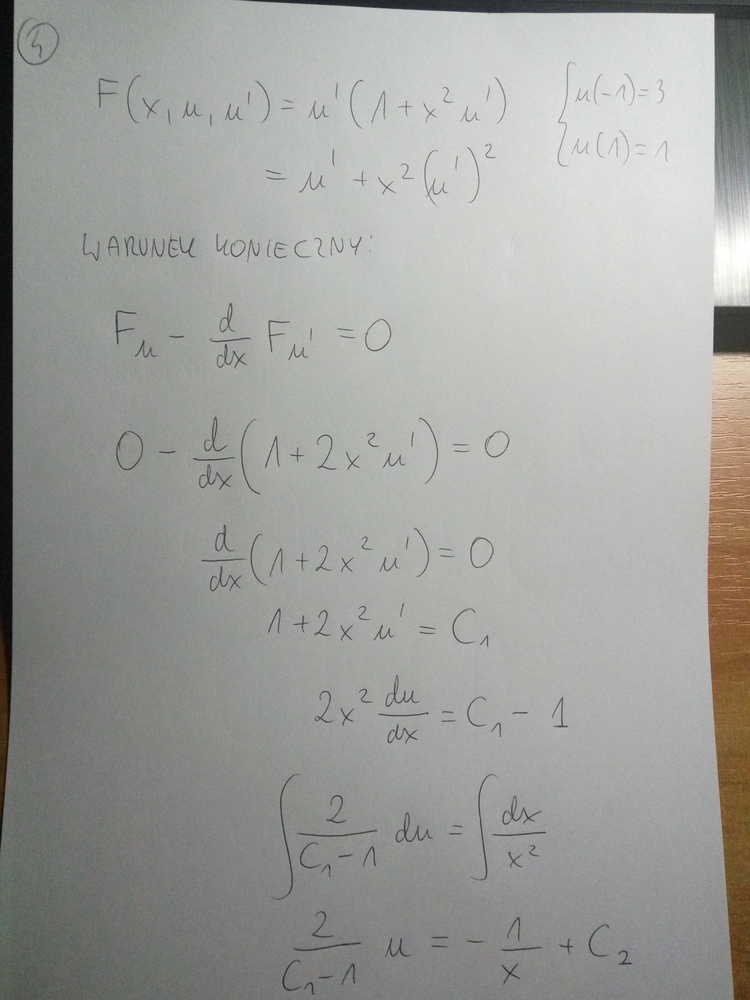 4
F(x, u, u') = u'(1 + x² u') { u(-1) = 3
= u' + x² (u')² { u(1) = 1
WARUNEK KONIECZNY:
F_u - d/dx F_u' = 0
0 - d/dx (1 + 2x² u') = 0
d/dx (1 + 2x² u') = 0
1 + 2x² u' = C₁
2x² du/dx = C₁ - 1
∫ 2/(C₁ - 1) du = ∫ dx/x²
2/(C₁ - 1) u = - 1/x + C₂